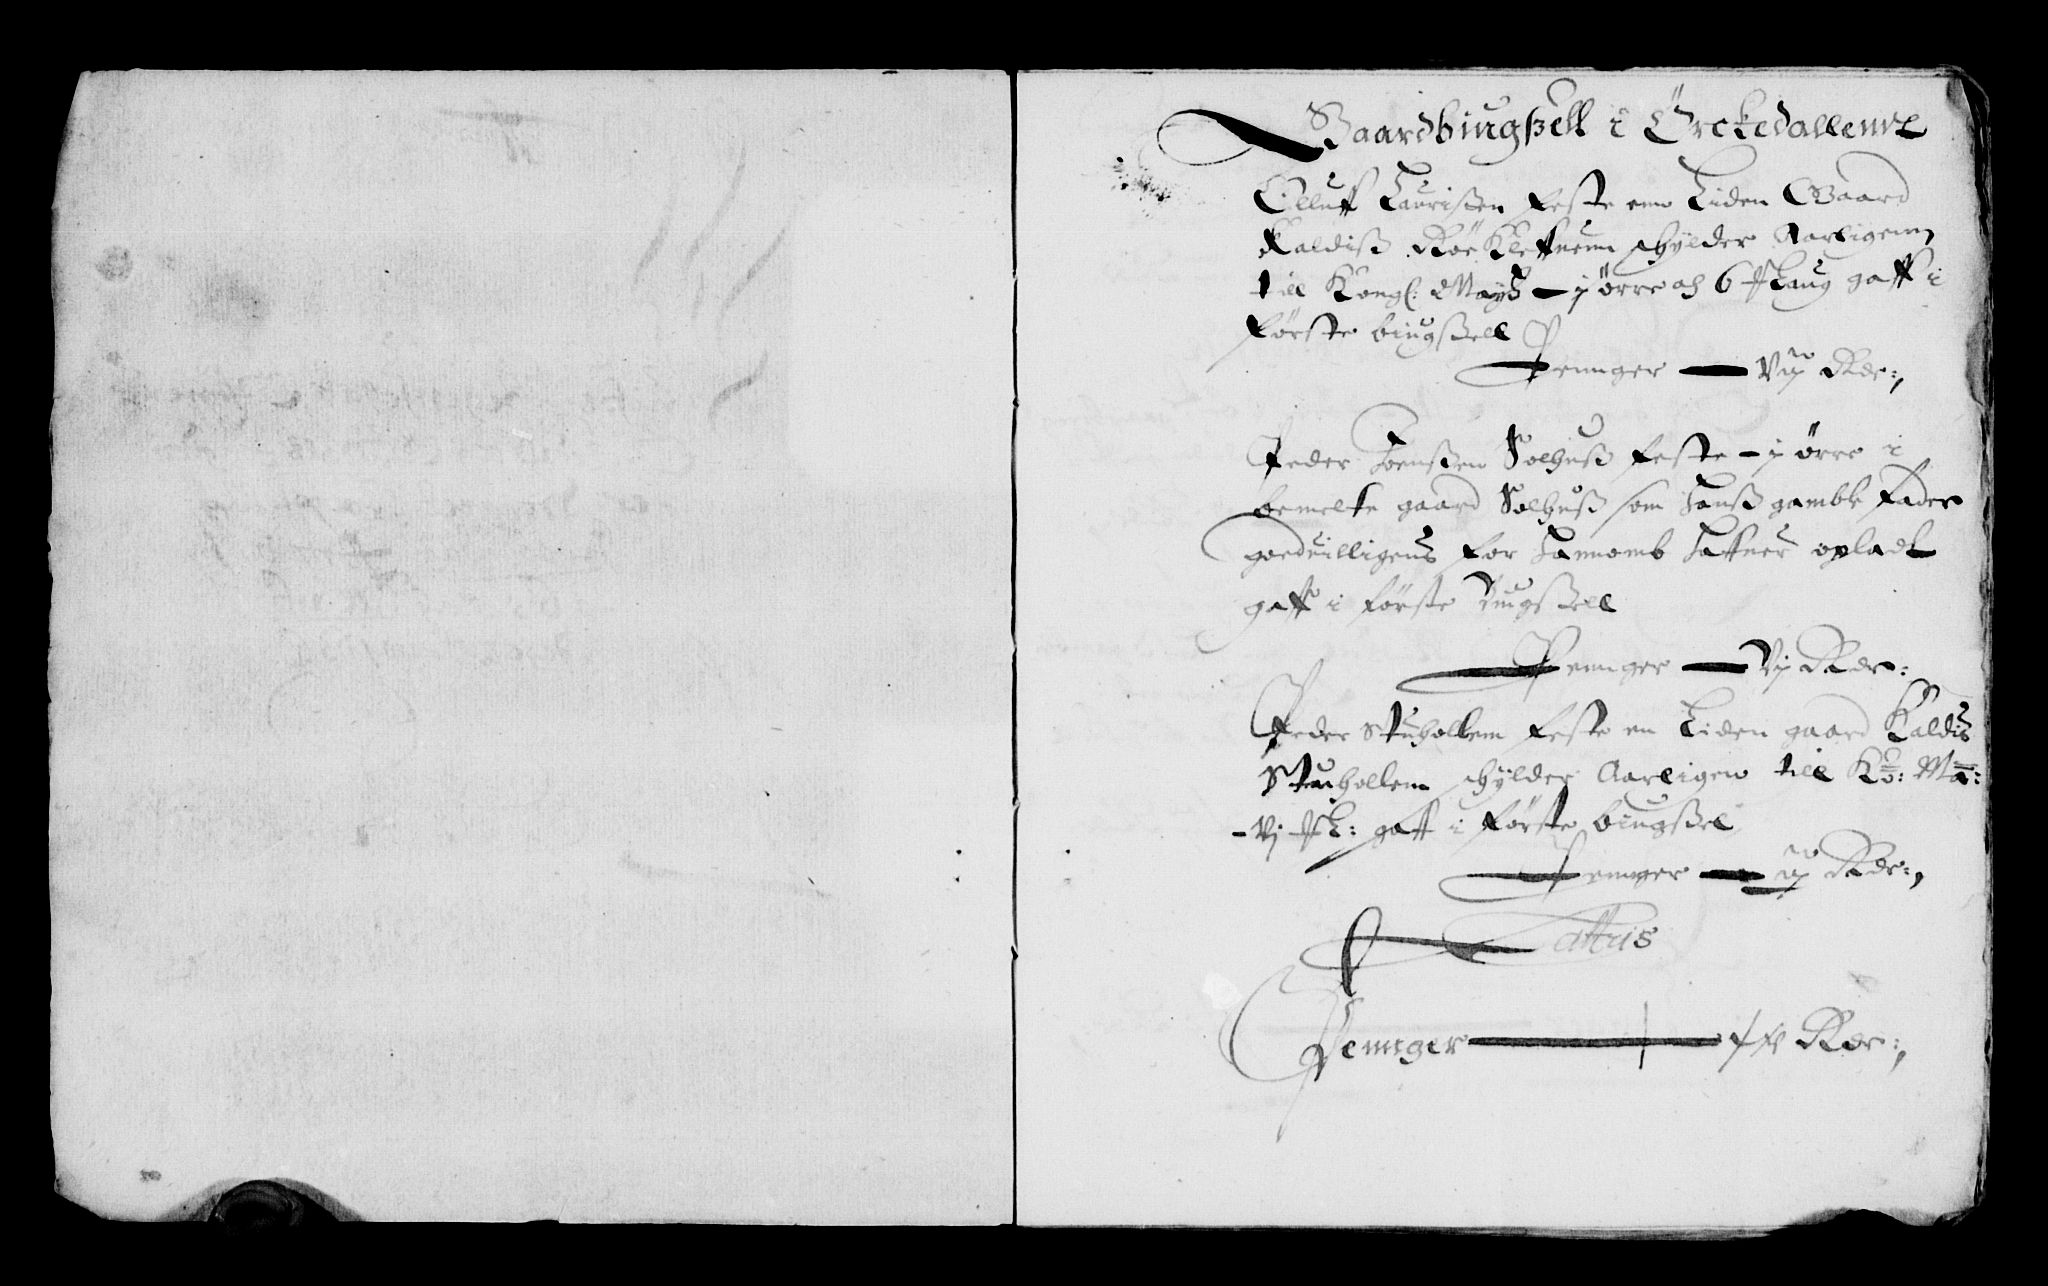 Gaardbiugßell i Örckedallenn
Olluff Laurißen feste enn Liden Gaard
Kaldiß Röe Kleffuenn schylder Aarligenn
till Kongl: Maytz – j örre och 6 ß Laug gaff i
förste biugßell
Pennger — Vij Rdr:,
Peder Joenßen Solhuß feste – j örre i
bemelte gaard Solhuß som hanß gamble fader
goeduilligens for hannomb haffuer opladt
gaff i förste bugßell
Pennger — Vj Rdr:
Peder Stuhollem feste en Liden gaard Kaldis
Stuehollem schylder Aarligen till Ko: Ma:
– Vj ß L: gaff i förste biugßel
Pennger — ij Rdr:,
Lattus
Penniger — Rdr:,